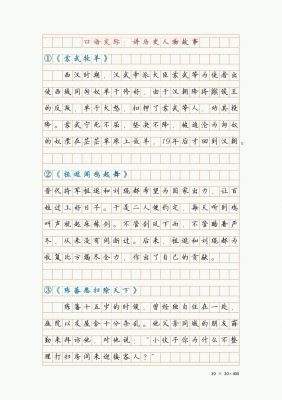 口语交际：讲历史人物故事
①《苏武牧羊》
西汉时期，汉武帝派大臣苏武等为使者出
使西域同匈奴单于修好，由于汉朝降将缑侯王
的反叛，单于大怒，扣押了苏武等人，对其投
降。苏武宁死不屈，坚决不降，被逼沦为匈奴
的奴隶在茫茫草原上放羊，19年后才回到汉朝。
②《祖逖闻鸡起舞》
晋代将军祖逖和刘琨都希望为国家出力，让百
姓过上好日子。于是二人便约定，每天听到鸡
叫声就起床练剑。不管刮风下雨，不管酷暑严
冬，从来没有间断过。后来，祖逖和刘琨都为
收复北方竭尽全力，作出了自己的贡献。
③《陈蕃愿扫除天下》
陈蕃十五岁的时候，曾经独自住在一处，
庭院以及屋舍十分杂乱。他父亲同城的朋友薛
勤来拜访他，对他说：“小伙子你为什么不整
理打扫房间来迎接客人？”
20 × 20=400